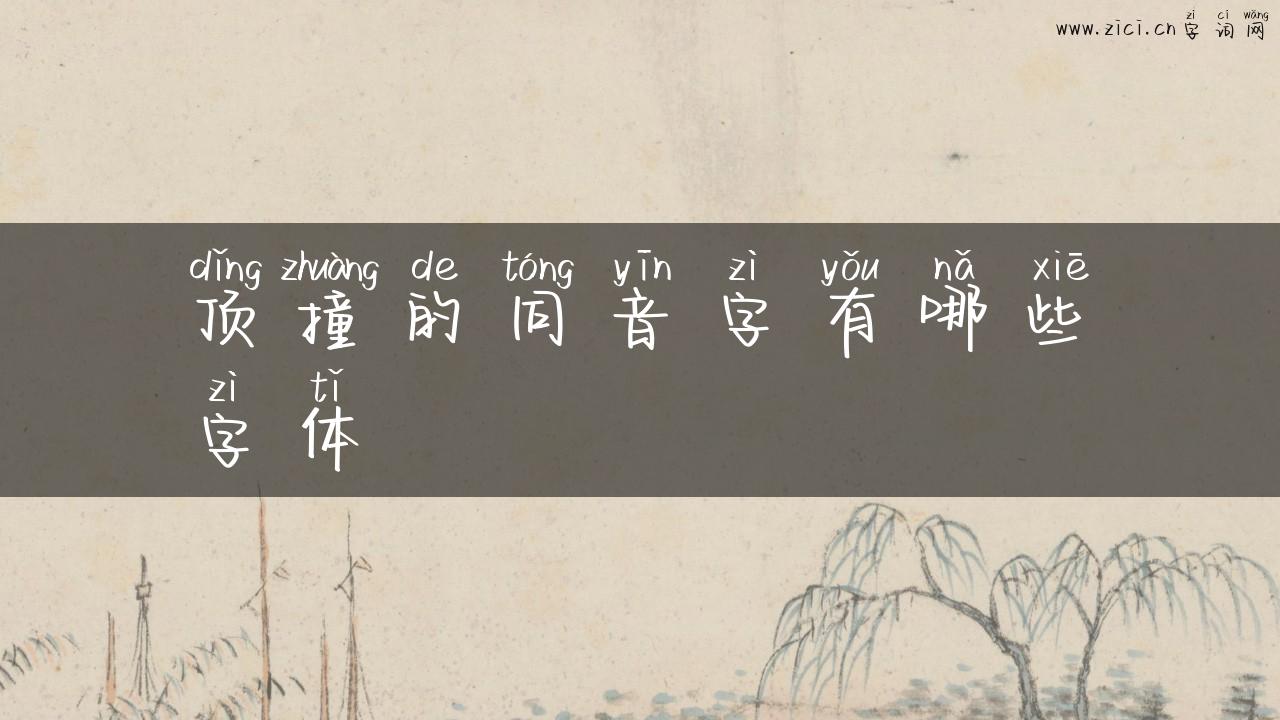 zì cí wǎng
www.zici.cn 字词网
dǐng zhuàng de tóng yīn zì yǒu nǎ xiē
顶撞的同音字有哪些
zì tǐ
字体